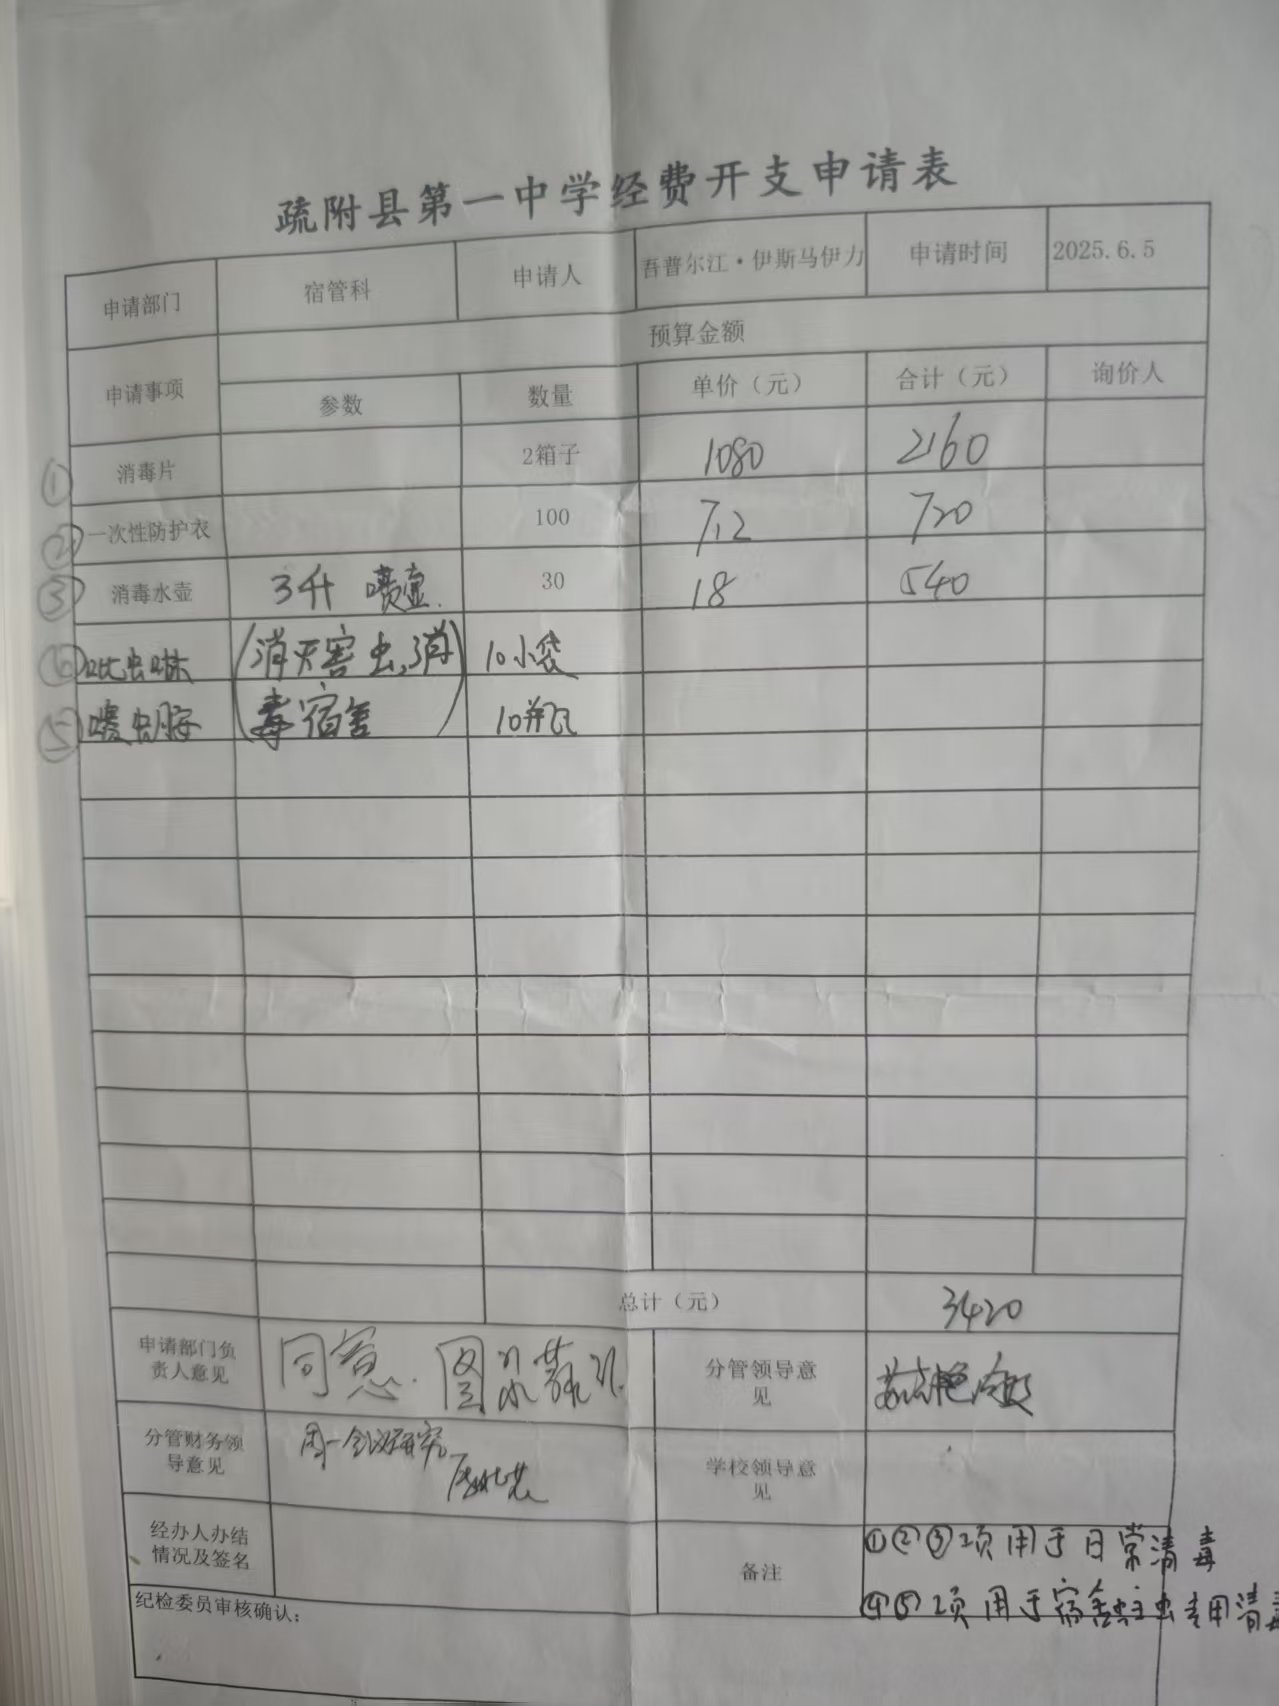 疏附县第一中学经费开支申请表
申请部门 宿管科 申请人 吾普尔江·伊斯马伊力 申请时间 2025.6.5
申请事项 预算金额
参数 数量 单价（元） 合计（元） 询价人
① 消毒片 2箱子 1080 2160
② 一次性防护衣 100 7.2 720
③ 消毒水壶 3升 喷壶. 30 18 540
④ 吡虫啉 (消灭害虫,消 10小袋
⑤ 噻虫胺 毒宿舍) 10瓶
总计（元） 3420
申请部门负责人意见 同意. 分管领导意见
分管财务领导意见 周一会议研究 学校领导意见
经办人办结情况及签名 备注 ①②③项用于日常清毒
④⑤项用于宿舍蛀虫专用清毒
纪检委员审核确认：